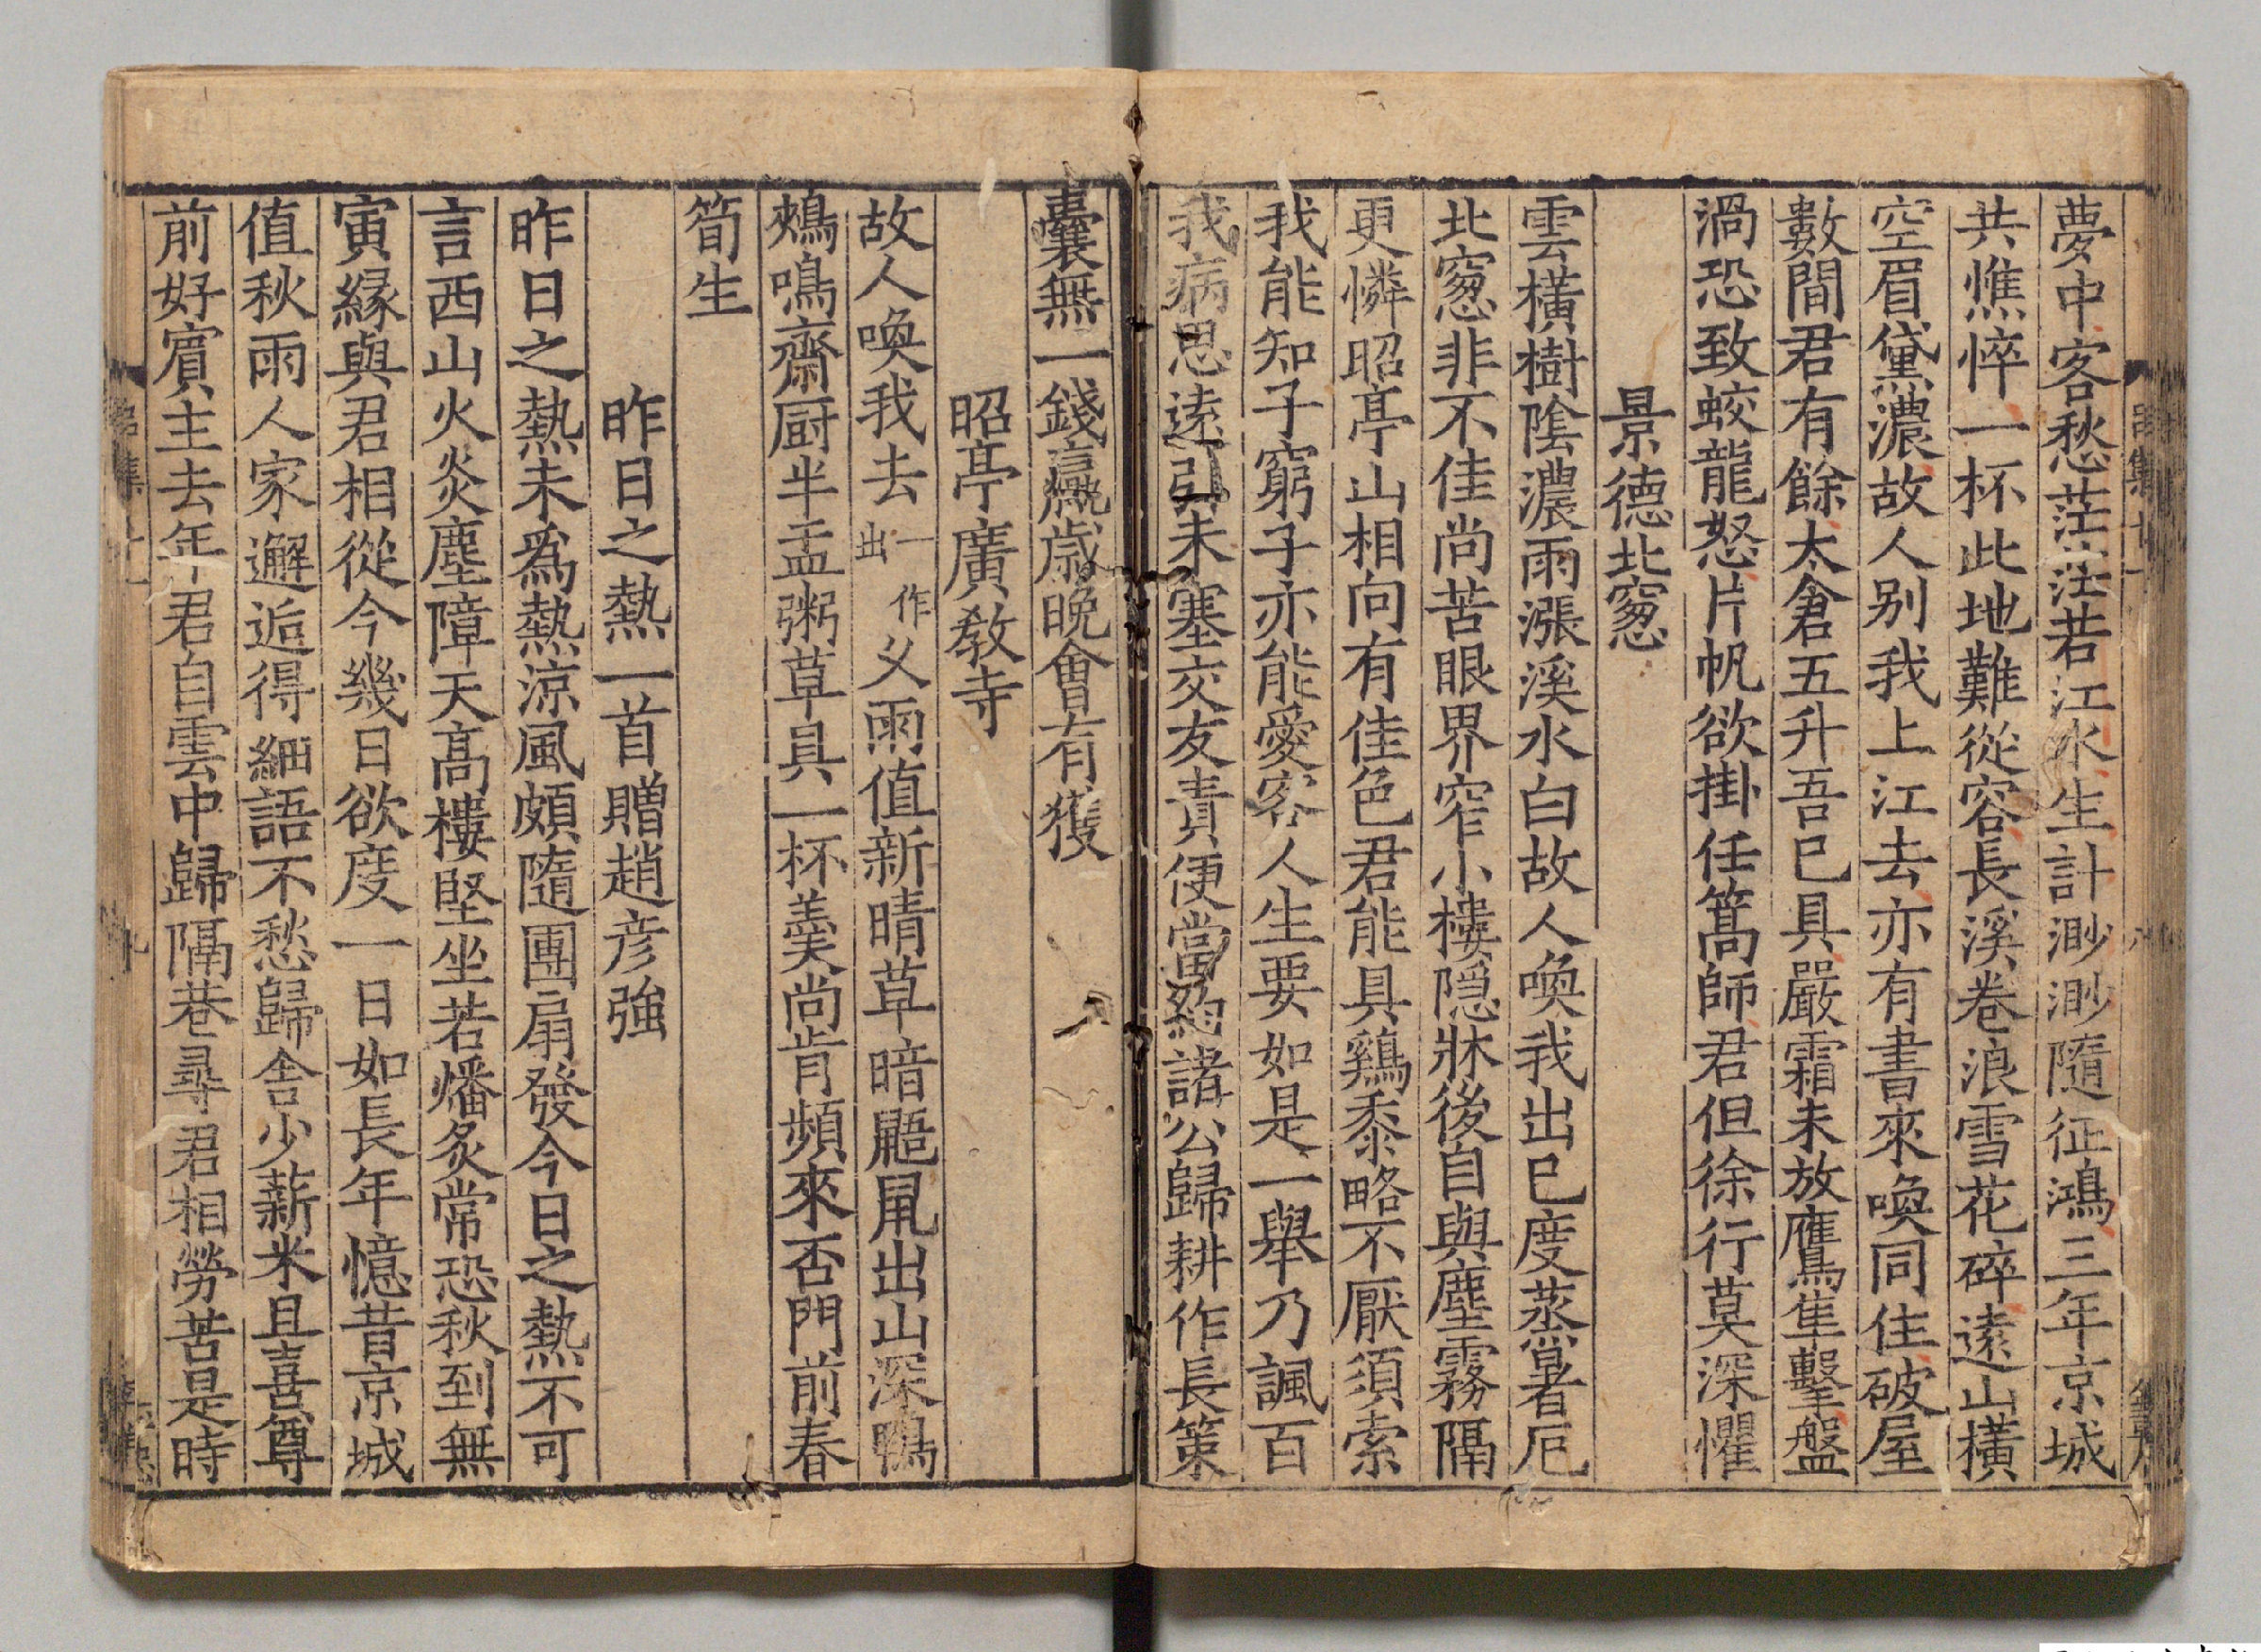 夢中客愁茫茫若江水生計渺渺隨征鴻三年京城
共憔悴一杯此地難從容長溪卷浪雪花碎遠山橫
空眉黛濃故人别我上江去亦有書來喚同住破屋
數間君有餘太倉五升吾已具嚴霜未放鷹隼擊盤
渦恐致蛟龍怒片帆欲掛任篙師君但徐行莫深懼
景德北窻
雲橫樹陰濃雨漲溪水白故人喚我出已度蒸暑厄
北窻非不佳尚苦眼界窄小樓隠牀後自與塵霧隔
更憐昭亭山相向有佳色君能具鷄黍略不厭須索
我能知子窮子亦能愛客人生要如是一舉乃諷百
我病思遠引未塞交友責便當約諸公歸耕作長策
囊無一錢羸歲晚會有獲
昭亭廣敎寺
故人喚我去一作出父雨值新晴草暗鼯鼠出山深鴨
鵊鳴齋厨半盂粥草具一杯羹尚肯頻來否門前春
筍生
昨日之熱一首贈趙彦強
昨日之熱未爲熱涼風頗隨團扇發今日之熱不可
言西山火炎塵障天高樓堅坐若燔炙常恐秋到無
寅縁與君相從今幾日欲度一日如長年憶昔京城
值秋雨人家邂逅得細語不愁歸舍少薪米且喜尊
前好賓主去年君自雲中歸隔巷尋君相勞苦是時